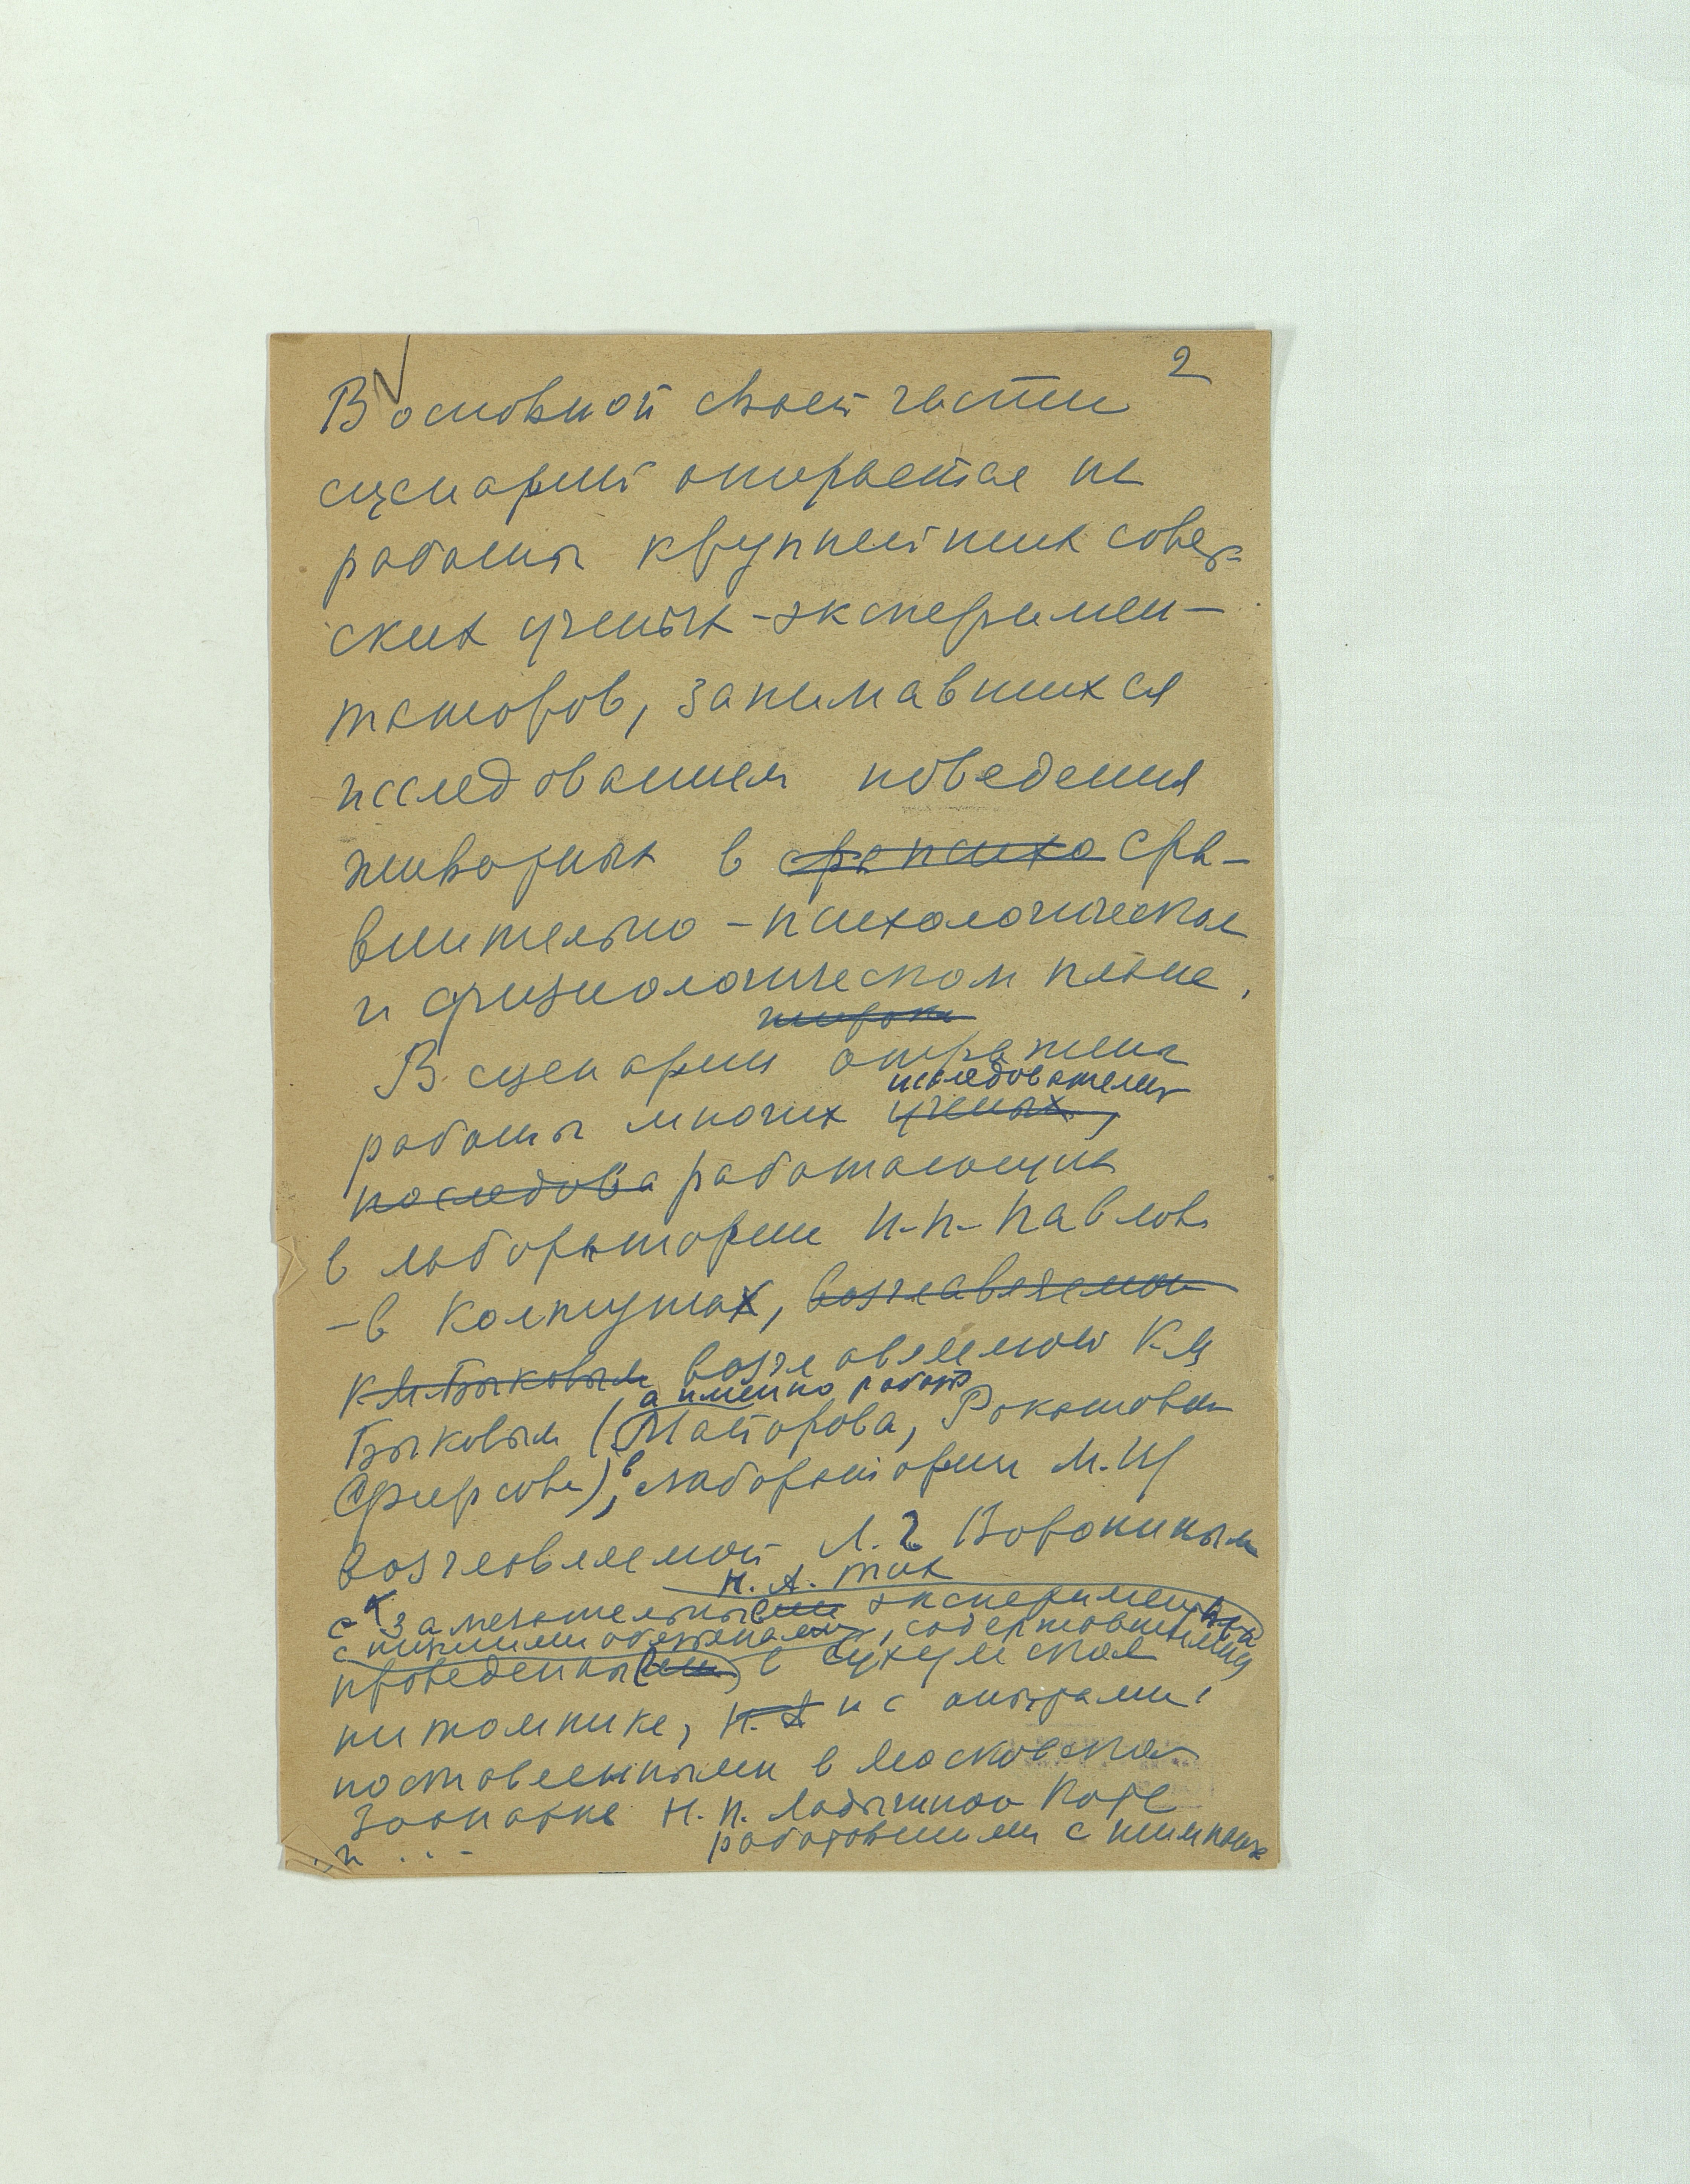 2
В основной своей части
сценарий опирается на
работы крупнейших совет-
ских ученых-эксперимен-
таторов, занимавшихся
исследованием поведения
животных в сра психо сра-
внительно-психологическом
и физиологическом плане.
широко
В сценарии отражены
исследователей
работы многих ученых,
последова работающих
в лаборатории И.П. Павлова
- в Колтушах, возглавляемой
К.М. Быковым возглавляемой К.М
а именно работ
Быковым (Майорова, Рокотовой
Фирсова), в лаборатории М.
возглавляемой Л.Г Ворониным
Н.А. Тих
с замечательными эксперимен
с низшими обезьянами, содержавшимися
проведенными в Сухумском
питомнике, Н.А и с опытами,
поставленными в Московском
Зоопарке Н.Н. Ладыгиной Котс
работавшими с шимпанзе
и ...